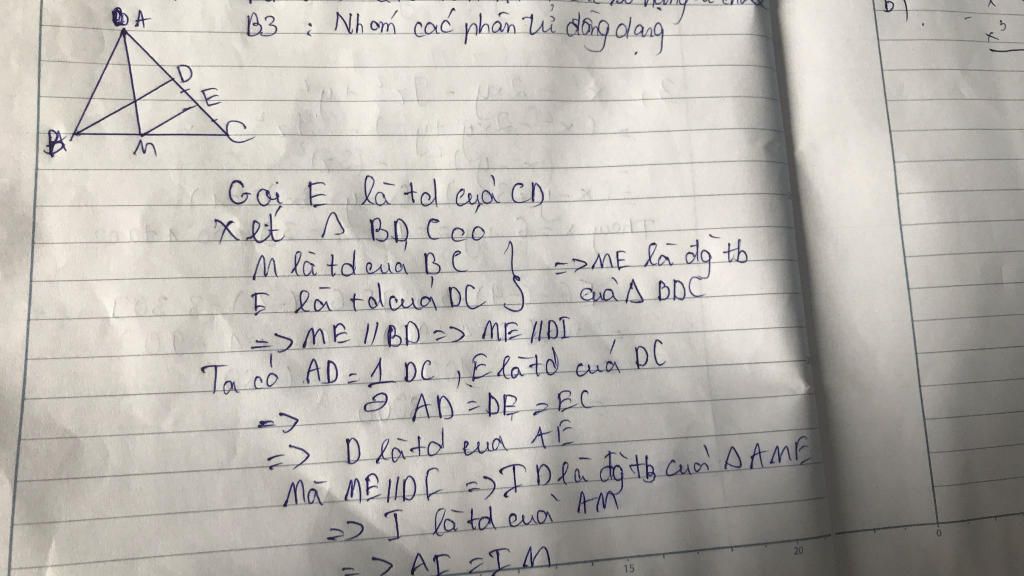 B3 : Nhóm các phần tử đồng dạng
b)
x³
A
D
E
B
M
C
Gọi E là td của CD
Xét Δ BDC có
M là td của BC } => ME là đg tb
E là td của DC } của Δ BDC
=> ME // BD => ME // DI
Ta có AD = 1/2 DC, E là td của DC
=> AD = DE = EC
=> D là td của AE
Mà ME // DI => ID là đg tb của Δ AME
=> I là td của AM
=> AI = IM
15
20
0